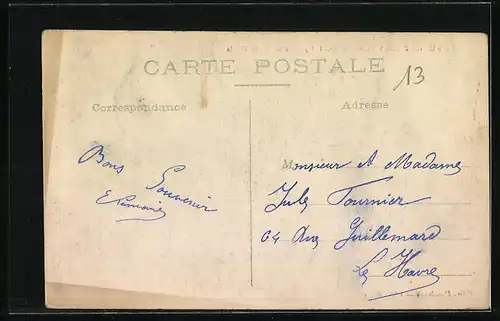 CARTE POSTALE
13
Correspondance
Adresse
Bons
Souvenir
Monsieur & Madame
Jules Fournier
64 Rue Guillemard
Le Havre